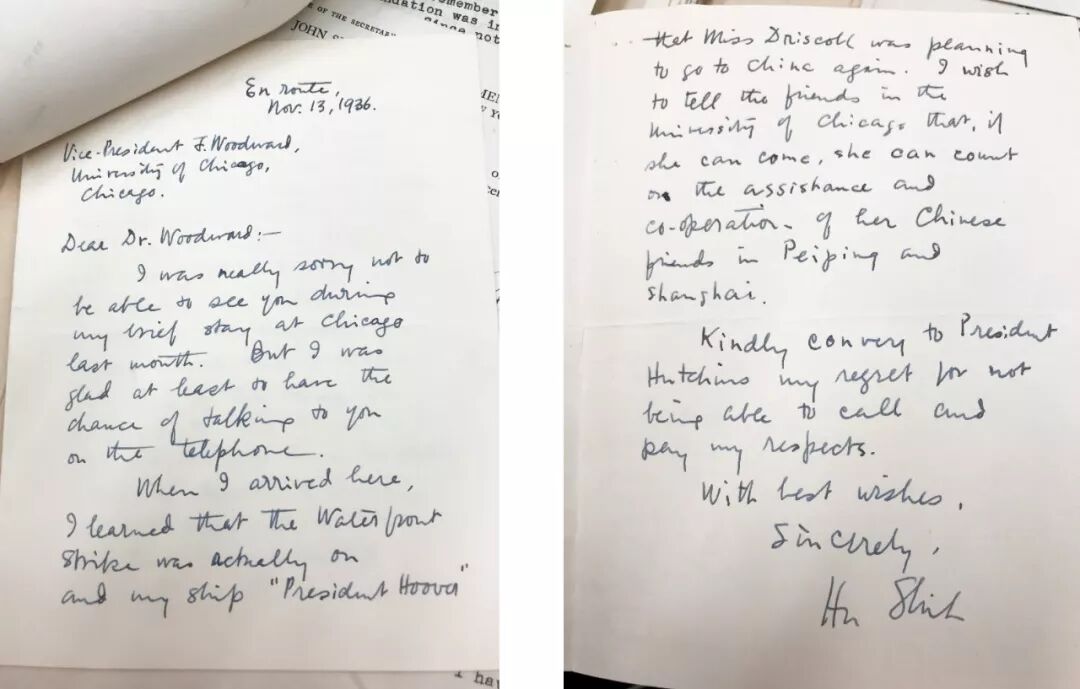 emember
dation was in
Since not
E OF THE SECRETAR
JOHN
En route,
Nov. 13, 1936.
Vice-President F. Woodward,
University of Chicago,
Chicago.
Dear Dr. Woodward:—
I was really sorry not to
be able to see you during
my brief stay at Chicago
last month. But I was
glad at least to have the
chance of talking to you
on the telephone.
When I arrived here,
I learned that the Waterfront
Strike was actually on
and my ship "President Hoover"
I ha
that Miss Driscoll was planning
to go to China again. I wish
to tell the friends in the
University of Chicago that, if
she can come, she can count
on the assistance and
co-operation of her Chinese
friends in Peiping and
Shanghai.
Kindly convey to President
Hutchins my regret for not
being able to call and
pay my respects.
With best wishes,
Sincerely,
Hu Shih